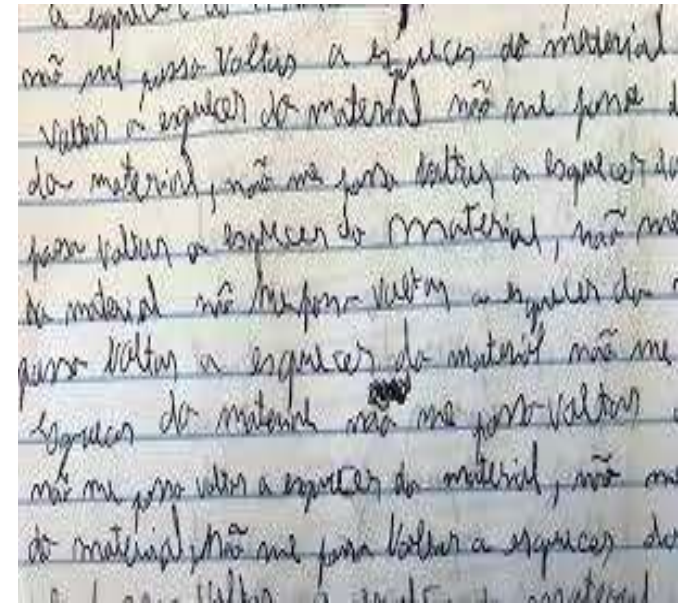 a esquecer do material
não me posso voltar a esquecer do material
voltar a esquecer do material não me posso
do material, não me posso voltar a esquecer do
posso voltar a esquecer do material, não me
do material não me posso voltar a esquecer do
posso voltar a esquecer do material não me
esquecer do material não me posso voltar a
não me posso voltar a esquecer do material, não me
do material, não me posso voltar a esquecer do
posso voltar a esquecer do material